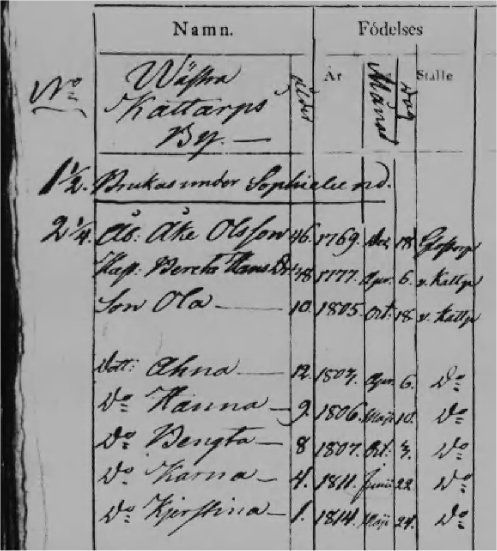 Namn.
Födelses
Ålder
År
Månad
Dag
Ställe
No
Wästra
Kattarps
By.
1 ½. Brukas under Sophielund.
2 ¼. Åb: Åke Olsson 46. 1769. 18
Hust: Bereta Hans Dr 48 1777. Apr. 6. v. Kattp
Son Ola 10. 1805. Oct. 18 v. Kattp
Dott: Ahna 12. 1803. Apr. 6. Do
Do Hanna 9. 1806. Maji 10. Do
Do Bengta 8 1807. Oct. 3. Do
Do Karna 4. 1811. Junii 22 Do
Do Kjerstina 1. 1814. Maji 24. Do